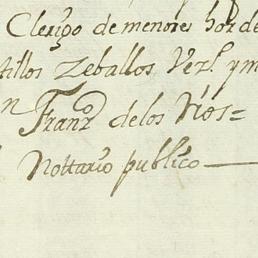 Clerigo de menores hor de
tillos Zeballos Verl. y m
n Franco. de los Rios =
Nottario publico